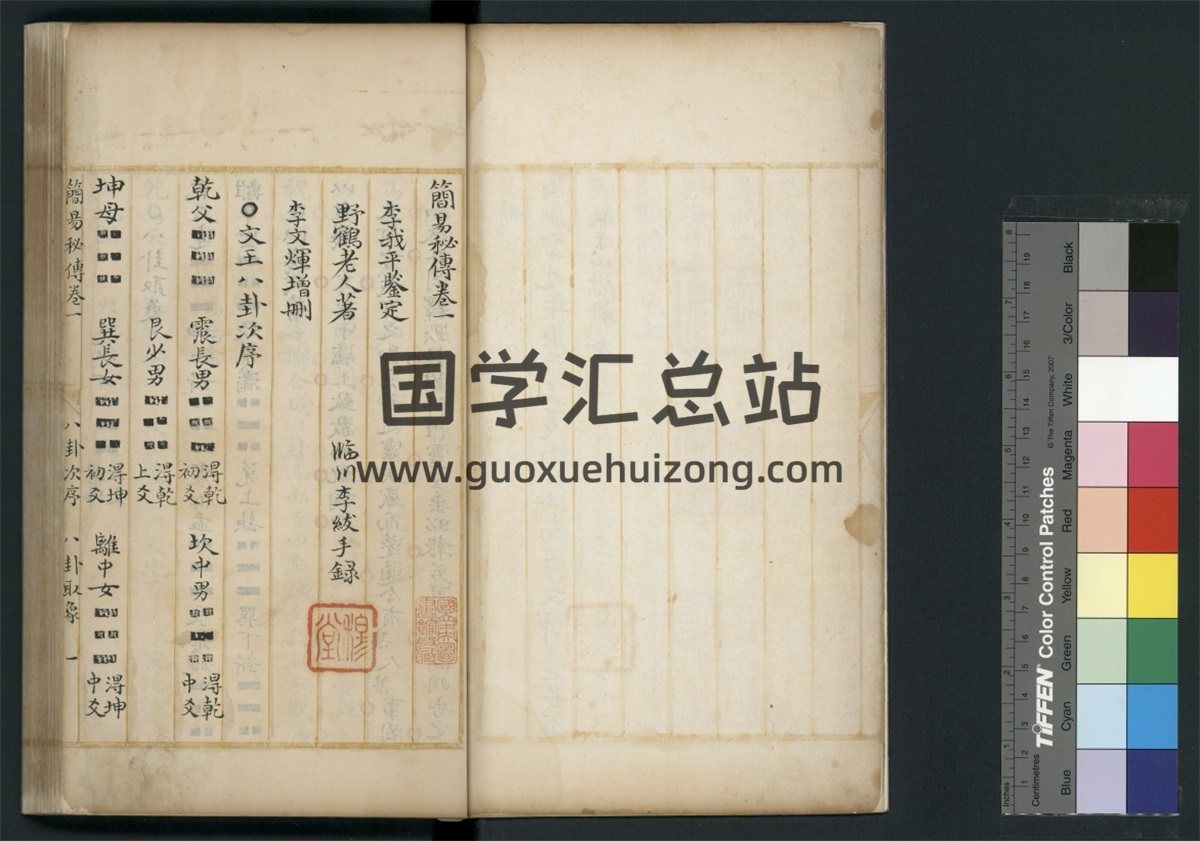 簡易秘傳卷一
李我平鑒定
野鶴老人著 临川李紱手録
李文煇增刪
○文王八卦次序
乾父 震長男 淂乾初爻 坎中男 淂乾中爻
艮少男 淂乾上爻
坤母 巽長女 淂坤初爻 離中女 淂坤中爻
簡易秘傳卷一 八卦次序 八卦取象 一
穆堂
国学汇总站
www.guoxuehuizong.com
TIFFEN Color Control Patches
© The Tiffen Company, 2007
Inches
Centimetres
Blue
Cyan
Green
Yellow
Red
Magenta
White
3/Color
Black